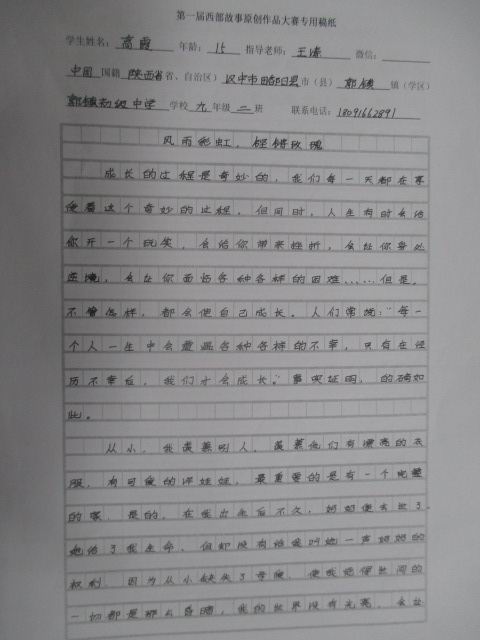 第一届西部故事原创作品大赛专用稿纸
学生姓名：高霞 年龄：15 指导老师：王涛 微信：
中国 国籍 陕西省 省、自治区） 汉中市 市（县） 郭镇 镇（学区）
郭镇初级中学 学校 九 年级 二 班 联系电话：18091662891
风雨彩虹，铿锵玫瑰
成长的过程是奇妙的，我们每一天都在享
受着这个奇妙的过程，但同时，人生有时会给
你开一个玩笑，会给你带来挫折，会让你身处
逆境，会让你面临各种各样的困难……但是，
不管怎样，都会使自己成长。人们常说："每一
个人一生中会遭遇各种各样的不幸，只有在经
历不幸后，我们才会成长。"事实证明，的确如
此。
从小，我羡慕别人，羡慕他们有漂亮的衣
服，有可爱的洋娃娃，最重要的是有一个完整
的家，是的，在我出生后不久，妈妈便去世了。
她给了我生命，但却没有给我叫她一声妈妈的
权利，因为从小缺失了母爱，使我觉得世间的
一切都是那么昏暗，我的世界没有光亮，会让